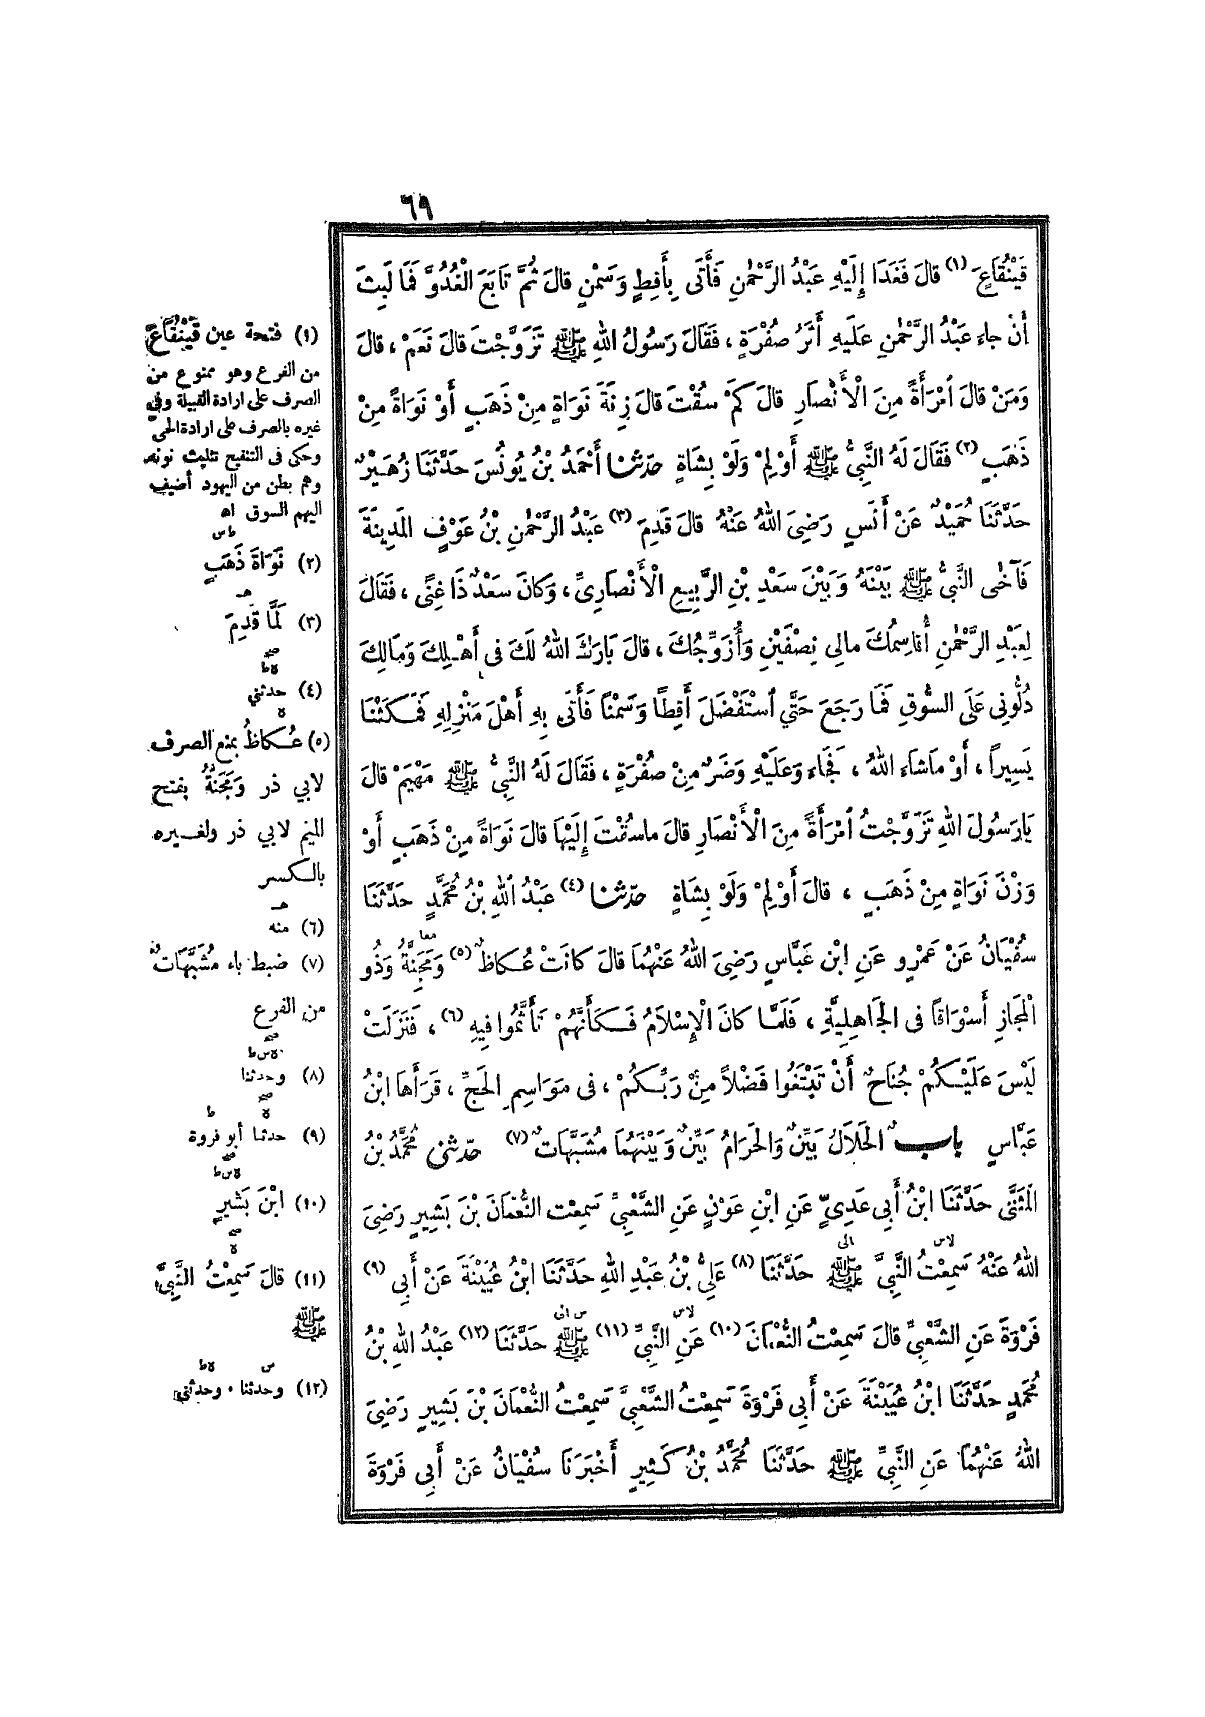 ٦٩
قَيْنُقَاعَ (١) قَالَ فَغَدَا إِلَيْهِ عَبْدُ الرَّحْمٰنِ فَأَتَى بِأَقِطٍ وَسَمْنٍ قَالَ ثُمَّ تَابَعَ الْغُدُوَّ فَمَا لَبِثَ
أَنْ جَاءَ عَبْدُ الرَّحْمٰنِ عَلَيْهِ أَثَرُ صُفْرَةٍ ، فَقَالَ رَسُولُ اللهِ ﷺ تَزَوَّجْتَ قَالَ نَعَمْ ، قَالَ
وَمَنْ قَالَ امْرَأَةً مِنَ الْأَنْصَارِ قَالَ كَمْ سُقْتَ قَالَ زِنَةَ نَوَاةٍ مِنْ ذَهَبٍ أَوْ نَوَاةً مِنْ
ذَهَبٍ (٢) فَقَالَ لَهُ النَّبِيُّ ﷺ أَوْ لِمْ وَلَوْ بِشَاةٍ حدثنا أَحْمَدُ بْنُ يُونُسَ حَدَّثَنَا زُهَيْرٌ
حَدَّثَنَا حُمَيْدٌ عَنْ أَنَسٍ رَضِيَ اللهُ عَنْهُ قَالَ قَدِمَ (٣) عَبْدُ الرَّحْمٰنِ بْنُ عَوْفٍ الْمَدِينَةَ
فَآخَى النَّبِيُّ ﷺ بَيْنَهُ وَبَيْنَ سَعْدِ بْنِ الرَّبِيعِ الْأَنْصَارِيِّ ، وَكَانَ سَعْدٌ ذَا غِنًى ، فَقَالَ
لِعَبْدِ الرَّحْمٰنِ أُقَاسِمُكَ مَالِي نِصْفَيْنِ وَأُزَوِّجُكَ ، قَالَ بَارَكَ اللهُ لَكَ فِي أَهْلِكَ وَمَالِكَ
دُلُّونِي عَلَى السُّوقِ فَمَا رَجَعَ حَتَّى اسْتَفْضَلَ أَقِطًا وَسَمْنًا فَأَتَى بِهِ أَهْلَ مَنْزِلِهِ فَمَكَثْنَا
يَسِيرًا ، أَوْ مَا شَاءَ اللهُ ، فَجَاءَ وَعَلَيْهِ وَضَرٌ مِنْ صُفْرَةٍ ، فَقَالَ لَهُ النَّبِيُّ ﷺ مَهْيَمْ قَالَ
يَا رَسُولَ اللهِ تَزَوَّجْتُ امْرَأَةً مِنَ الْأَنْصَارِ قَالَ مَا سُقْتَ إِلَيْهَا قَالَ نَوَاةً مِنْ ذَهَبٍ أَوْ
وَزْنَ نَوَاةٍ مِنْ ذَهَبٍ ، قَالَ أَوْ لِمْ وَلَوْ بِشَاةٍ حدثنا (٤) عَبْدُ اللهِ بْنُ مُحَمَّدٍ حَدَّثَنَا
سُفْيَانُ عَنْ عَمْرٍو عَنِ ابْنِ عَبَّاسٍ رَضِيَ اللهُ عَنْهُمَا قَالَ كَانَتْ عُكَاظٌ (٥) وَمَجِنَّةُ وَذُو
الْمَجَازِ أَسْوَاقًا فِي الْجَاهِلِيَّةِ ، فَلَمَّا كَانَ الْإِسْلَامُ فَكَأَنَّهُمْ تَأَثَّمُوا فِيهِ (٦) ، فَنَزَلَتْ
لَيْسَ عَلَيْكُمْ جُنَاحٌ أَنْ تَبْتَغُوا فَضْلًا مِنْ رَبِّكُمْ ، فِي مَوَاسِمِ الْحَجِّ ، قَرَأَهَا ابْنُ
عَبَّاسٍ باب الْحَلَالُ بَيِّنٌ وَالْحَرَامُ بَيِّنٌ وَبَيْنَهُمَا مُشَبَّهَاتٌ (٧) حدثني مُحَمَّدُ بْنُ
الْمُثَنَّى حَدَّثَنَا ابْنُ أَبِي عَدِيٍّ عَنِ ابْنِ عَوْنٍ عَنِ الشَّعْبِيِّ سَمِعْتُ النُّعْمَانَ بْنَ بَشِيرٍ رَضِيَ
اللهُ عَنْهُ سَمِعْتُ النَّبِيَّ ﷺ حَدَّثَنَا (٨) عَلِيُّ بْنُ عَبْدِ اللهِ حَدَّثَنَا ابْنُ عُيَيْنَةَ عَنْ أَبِي (٩)
فَرْوَةَ عَنِ الشَّعْبِيِّ قَالَ سَمِعْتُ النُّعْمَانَ (١٠) عَنِ النَّبِيِّ (١١) ﷺ حَدَّثَنَا (١٢) عَبْدُ اللهِ بْنُ
مُحَمَّدٍ حَدَّثَنَا ابْنُ عُيَيْنَةَ عَنْ أَبِي فَرْوَةَ سَمِعْتُ الشَّعْبِيَّ سَمِعْتُ النُّعْمَانَ بْنَ بَشِيرٍ رَضِيَ
اللهُ عَنْهُمَا عَنِ النَّبِيِّ ﷺ حَدَّثَنَا مُحَمَّدُ بْنُ كَثِيرٍ أَخْبَرَنَا سُفْيَانُ عَنْ أَبِي فَرْوَةَ
(١) فتحة عين قَيْنُقَاعَ
من الفرع وهو ممنوع من
الصرف على ارادة القبيلة وفي
غيره بالصرف على ارادة الحي
وحكى فى التنقيح تثليث نونه
وهم بطن من اليهود أضيف
اليهم السوق اه
(٢) نَوَاةَ ذَهَبٍ
(٣) لَمَّا قَدِمَ
(٤) حدثني
(٥) عُكاظُ بمنع الصرف
لابي ذر وَمَجَنَّةُ بفتح
الميم لابي ذر ولغيره
بالكسر
(٦) منه
(٧) ضبط باء مُشَبَّهَاتٌ
من الفرع
(٨) وحدثنا
(٩) حدثنا أبو فروة
(١٠) ابْنَ بَشِيرٍ
(١١) قَالَ سَمِعْتُ النَّبِيَّ
ﷺ
(١٢) وحدثنا ٠ وحدثني